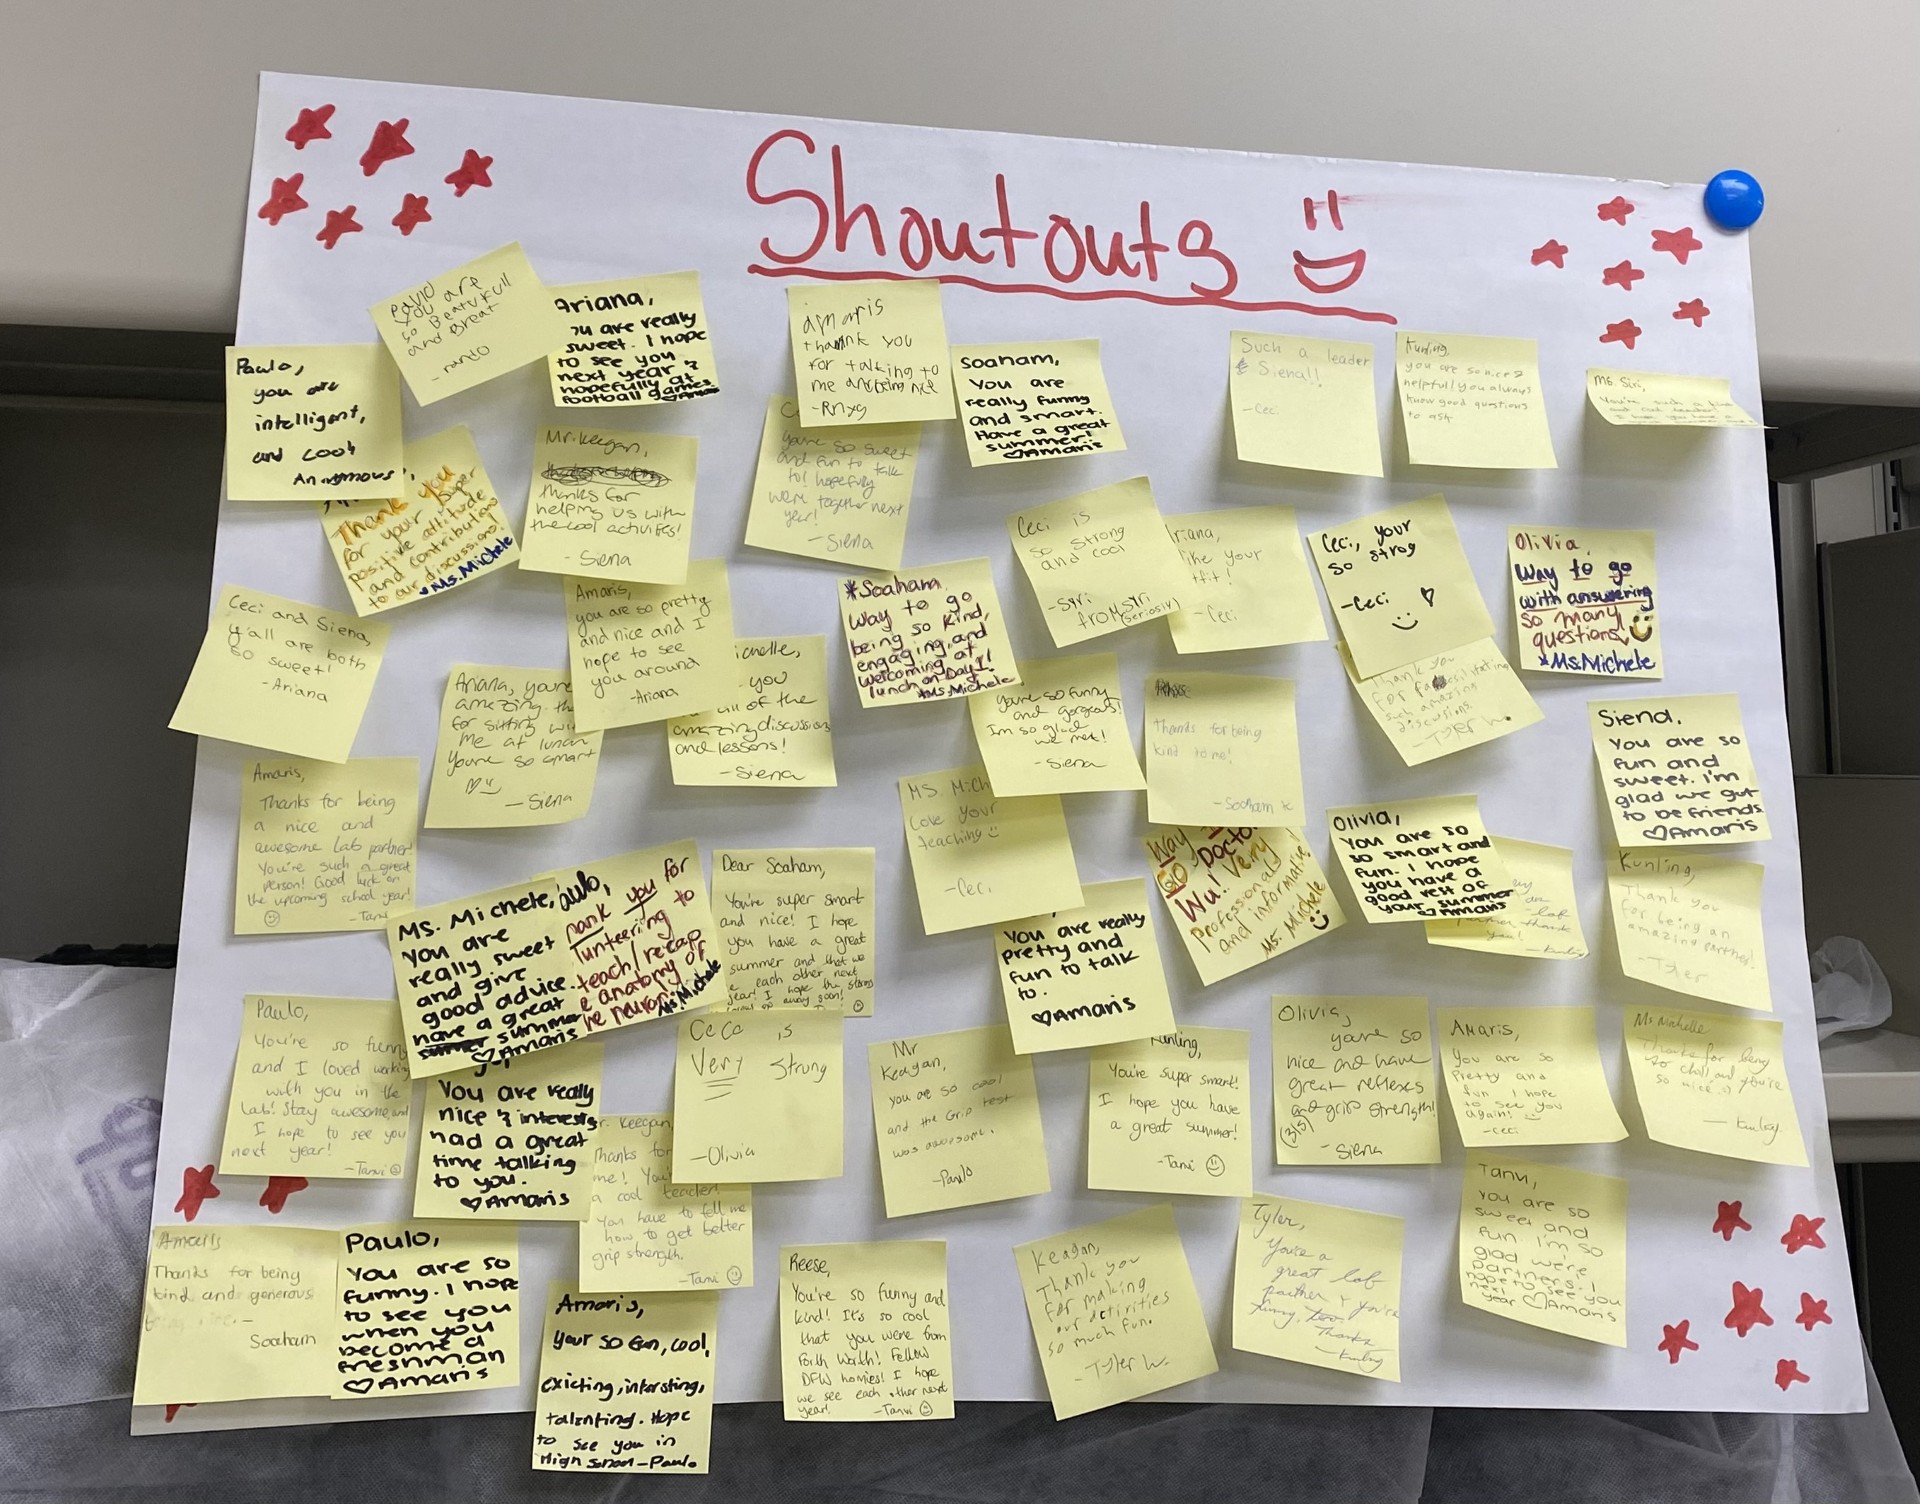 Shoutouts
David
You are
so Beatukull
and Great
- nando
Ariana,
are really
sweet. I hope
to see you
next year &
hopefully at
football games
♡Amaris
Paulo,
you are
intelligent,
and cool
Anonmous
Thank you
for your super
positive attitude
and contributions
to our discussions!
♥Ms.Michele
Mr. Keegan,
thanks for
helping us with
the cool activities!
- Siena
amaris
thank you
for talking to
me
You're so sweet
and fun to talk
to! hopefully
were together next
year!
- Siena
Soaham,
You are
really funny
and smart.
Have a great
summer!
♡Amaris
Such a leader
Siena!!
-Ceci
Kunling,
you are so nice &
helpful! you always
know good questions
to ask
Ms. Siri,
You're such a kind
and cool teacher!
I hope you have a
Ceci is
so strong
and cool
-Syri
from Syri
(seriosly)
riana,
like your
fit!
-Ceci
Ceci, your
so strog
-Ceci ♡
Olivia,
Way to go
with answering
so many
questions
*Ms.Michele
Thank you
for
such amazing
discussions
-Tyler W.
Ceci and Siena,
y'all are both
so sweet!
-Ariana
Amaris,
you are so pretty
and nice and I
hope to see
you around
-Ariana
Ariana, you're
amazing. th
for sitting wi
me at lunch
You're so smart
- Siena
ichelle,
you
all of the
amazing discussions
and lessons!
-Siena
*Soaham
Way to go
being so kind,
engaging, and
welcoming at
lunch on Day 1!
*Ms.Michele
you're so funny
and gorgeous!
Im so glad
we met!
- Siena
Thanks for being
kind to me!
-Soaham
Siena,
You are so
fun and
sweet. I'm
glad we got
to be friends
♡Amaris
Amaris,
Thanks for being
a nice and
awesome Lab partner!
You're such a great
person! Good luck on
the upcoming school year!
-Tanvi
Ms. Michele,
you are
really sweet
and give
good advice.
have a great
summer
♡Amaris
aulo,
hank you for
lunteering to
teach/recap
e anatomy of
he neuron!
Ms.Michele
Dear Soaham,
You're super smart
and nice! I hope
you have a great
summer and that we
each other next
year! I hope the storms
go away soon!
MS. Mich
Love your
teaching
-Ceci
You are really
pretty and
fun to talk
to.
♡Amaris
Way
Go Docto
Wu! Very
professional
and informative!
Ms. Michele
Olivia,
You are so
so smart and
fun. I hope
you have a
good rest of
your summer
♡Amaris
lab
thanks
you!
- Kunling
Kunling,
Thank you
for being an
amazing partner!
-Tyler
Paulo,
You're so funny
and I loved working
with you in the
Lab! Stay awesome and
I hope to see you
next year!
-Tanvi
You are really
nice &
had a great
time talking
to you.
♡Amaris
r. Keegan,
Thanks for
me! You'
a cool teacher!
You have to tell me
how to get better
grip strength.
-Tanvi
CeCe is
Very Strong
-Olivia
Mr
Keagan,
you are so cool
and the Grip test
was awesome.
-Paulo
Kunling,
You're super smart!
I hope you have
a great summer!
-Tanvi
Olivia,
you're so
nice and have
great reflexes
and grip strength!
(315)
-Siena
Amaris,
You are so
Pretty and
fun I hope
to see you
again!
-ceci
Ms Michelle
Thanks for being
so chill and you're
so nice :)
- Kunling
Thanks for being
kind and generous
Soaham
Paulo,
You are so
funny. I hope
to see you
when you
become a
freshman
♡Amaris
Amaris,
your so fun, cool,
exicting, intersting,
talenting. Hope
to see you in
High School -Paulo
Reese,
You're so funny and
kind! It's so cool
that you were from
Forth Worth! Fellow
DFW homies! I hope
we see each other next
year!
-Tanvi
Keagan,
Thank you
for making
our activities
so much fun.
-Tyler W.
Tyler,
You're a
great lab
partner & you're
funny, too.
Thanks
-Kunling
Tanvi,
You are so
sweet and
fun I'm so
glad we're
partners. I
hope to see you
next year
♡Amaris